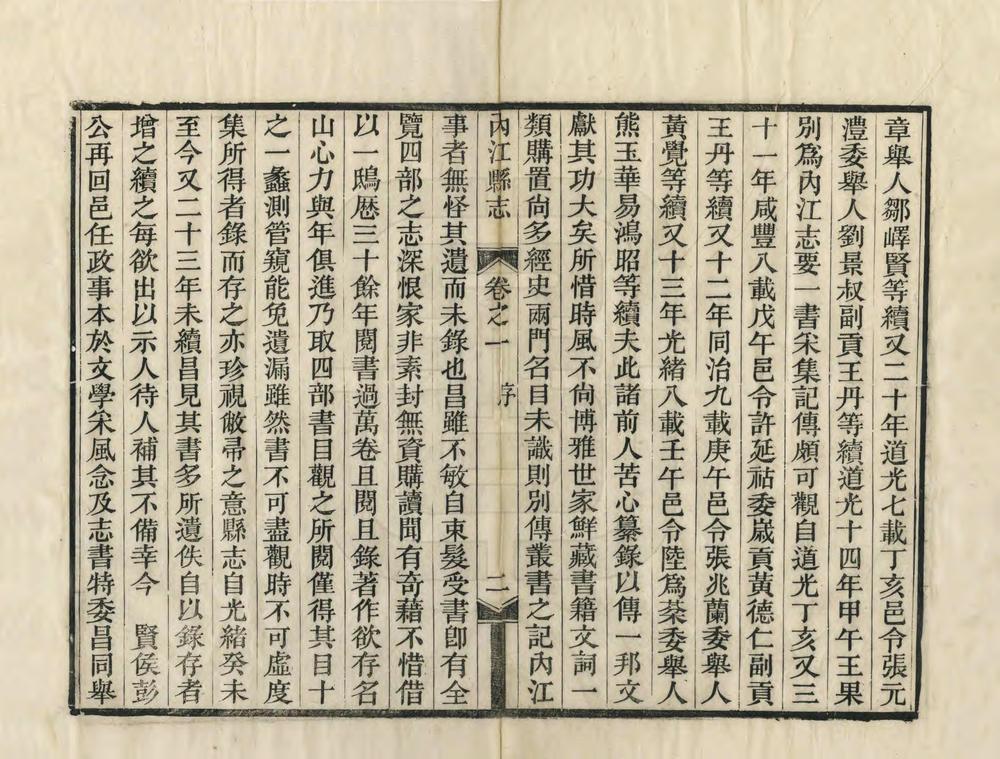 章舉人鄒嶧賢等續又二十年道光七載丁亥邑令張元
澧委舉人劉景叔副貢王丹等續道光十四年甲午王果
別爲內江志要一書宋集記傳頗可觀自道光丁亥又三
十一年咸豐八載戊午邑令許延祜委嵗貢黃德仁副貢
王丹等續又十二年同治九載庚午邑令張兆蘭委舉人
黃覺等續又十三年光緒八載壬午邑令陸爲棻委舉人
熊玉華易鴻昭等續夫此諸前人苦心纂錄以傳一邦文
獻其功大矣所惜時風不尙博雅世家鮮藏書籍文詞一
類購置尙多經史兩門名目未識則別傳叢書之記內江
內江縣志 卷之一 序 二
事者無怪其遺而未錄也昌雖不敏自束髮受書卽有全
覽四部之志深恨家非素封無資購讀聞有奇藉不惜借
以一鴟歷三十餘年閱書過萬卷且閱且錄著作欲存名
山心力與年俱進乃取四部書目觀之所閱僅得其目十
之一蠡測管窺能免遺漏雖然書不可盡觀時不可虛度
集所得者錄而存之亦珍視敝帚之意縣志自光緒癸未
至今又二十三年未續昌見其書多所遺佚自以錄存者
增之續之每欲出以示人待人補其不備幸今 賢侯彭
公再回邑任政事本於文學宋風念及志書特委昌同舉